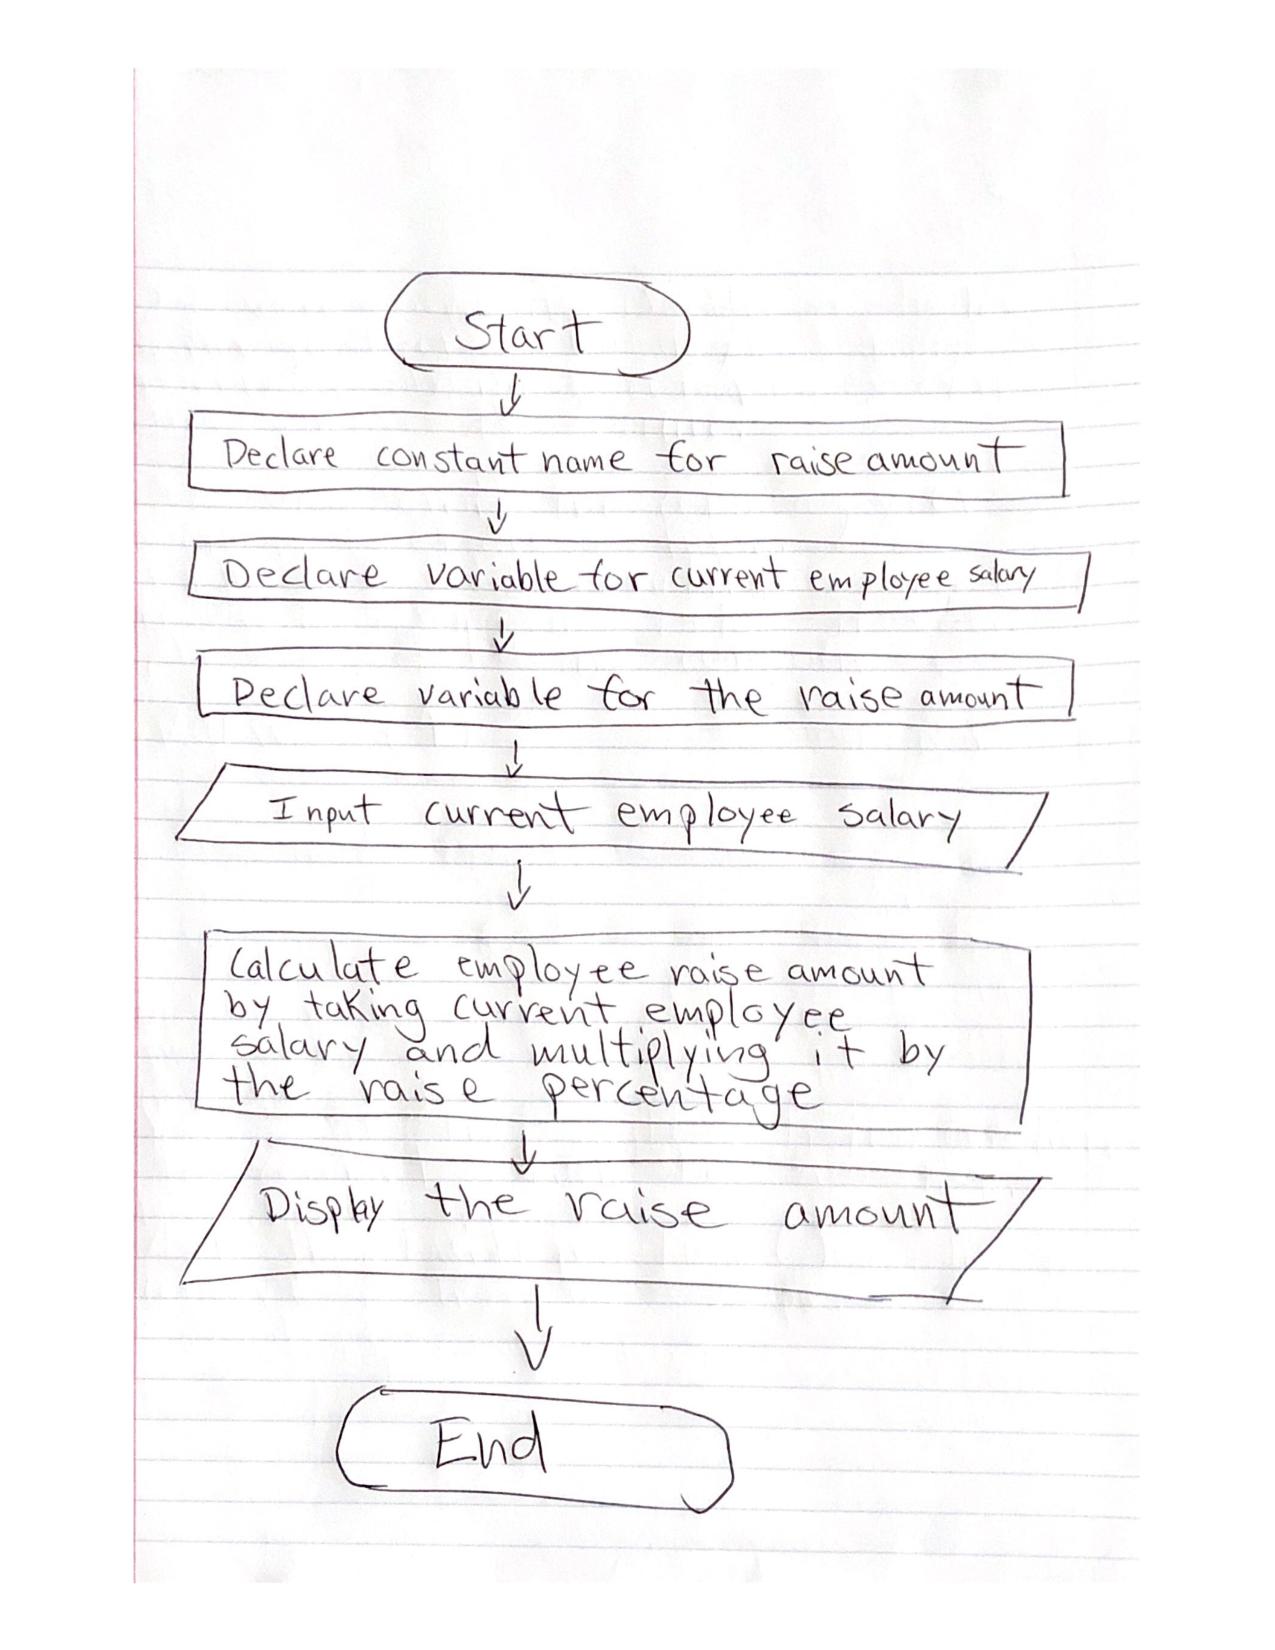 Start
Declare constant name for raise amount
Declare variable for current employee salary
Declare variable for the raise amount
Input current employee salary
Calculate employee raise amount
by taking current employee
salary and multiplying it by
the raise percentage
Display the raise amount
End